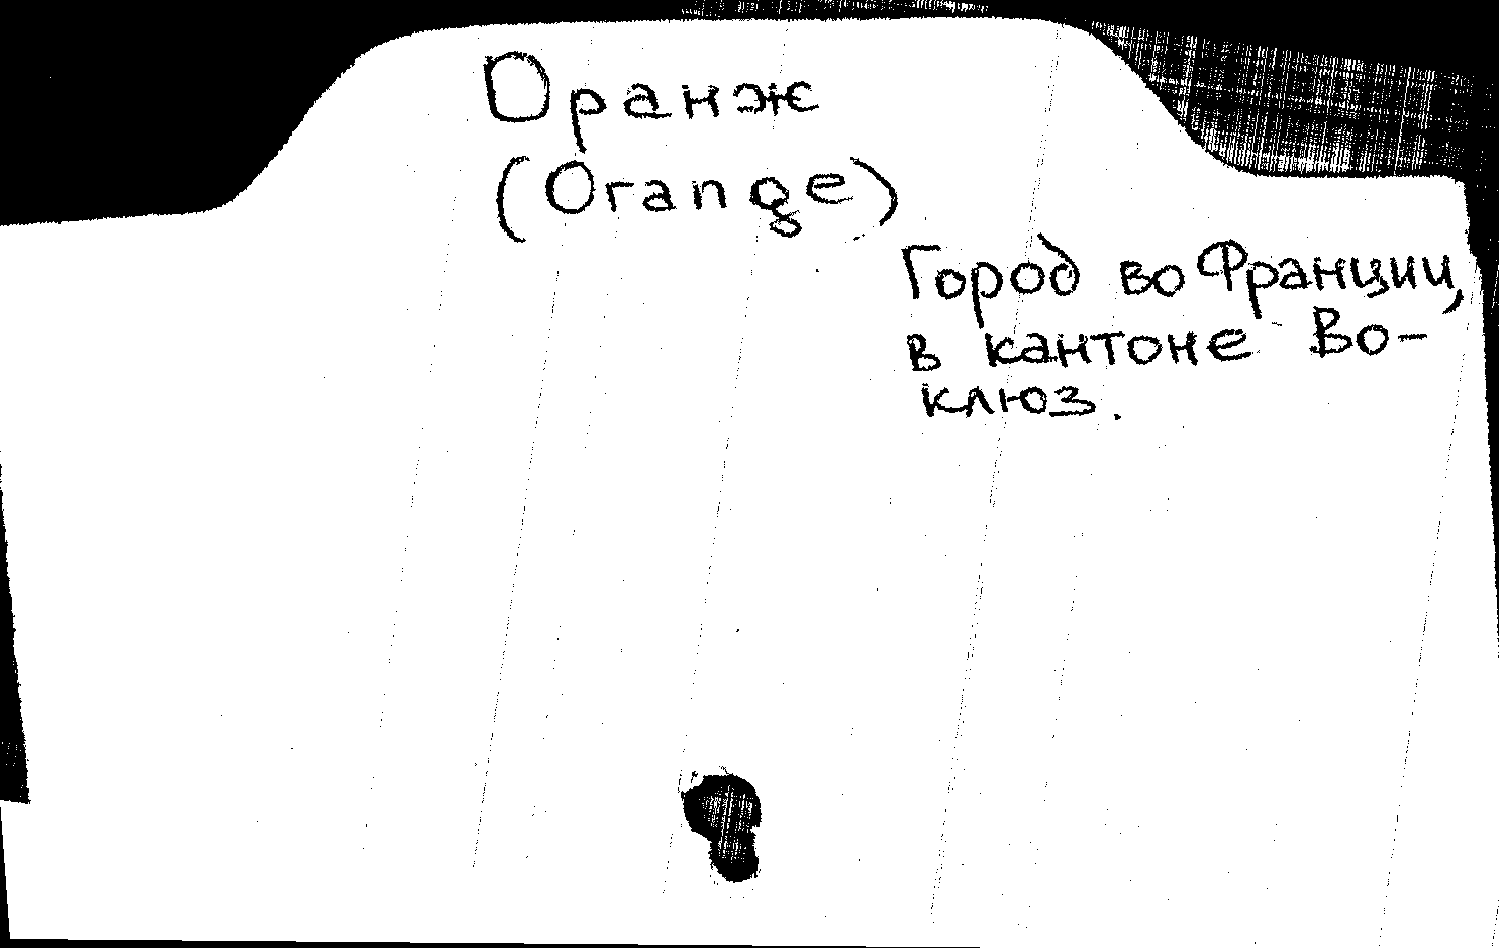 Оранж
(Orange)
Город во Франции,
в кантоне Во-
клюз.